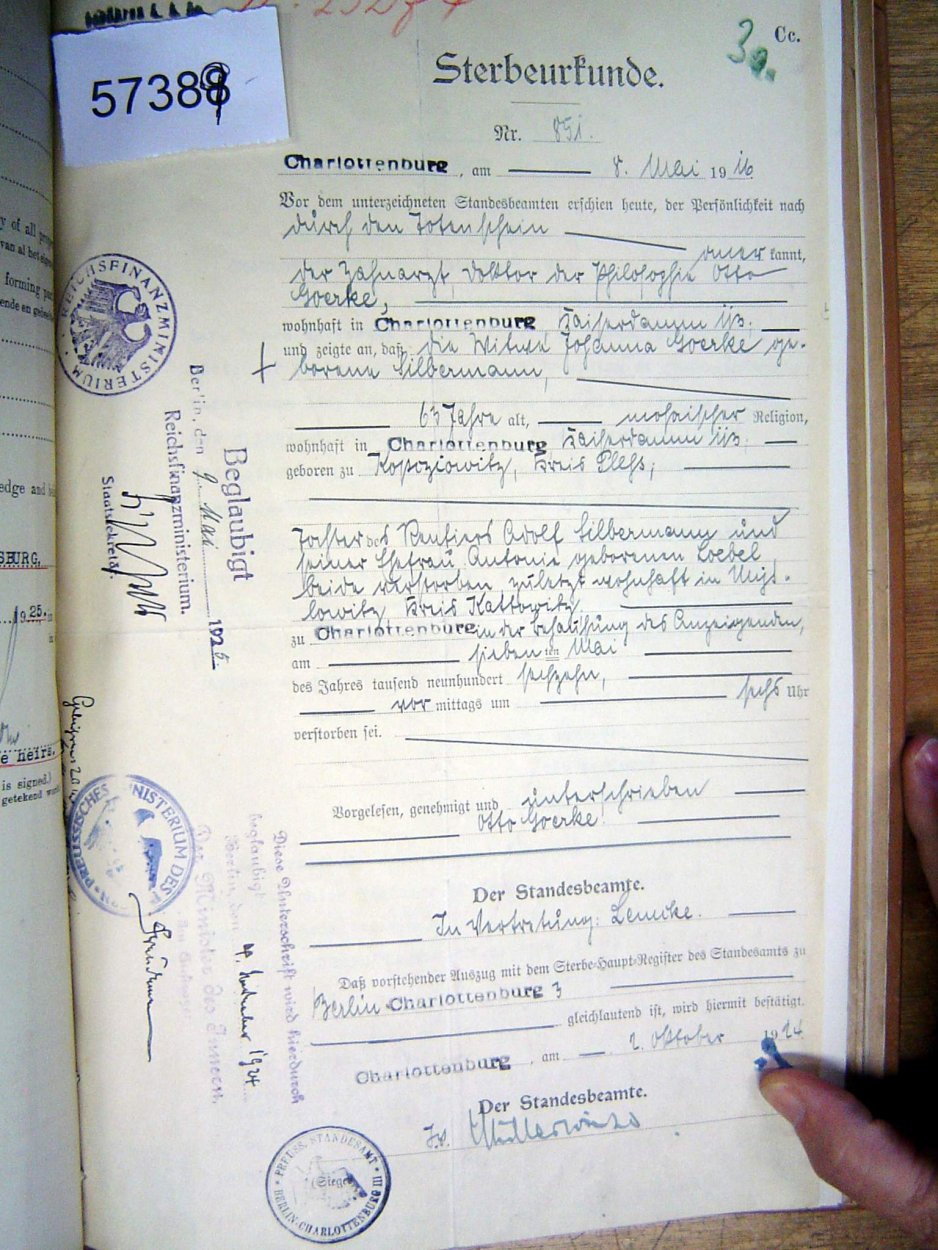 57389
3a.
Cc.
Sterbeurkunde.
Nr. 851.
Charlottenburg, am 8. Mai 1916
Vor dem unterzeichneten Standesbeamten erschien heute, der Persönlichkeit nach
durch den Totenschein
anerkannt,
der Zahnarzt, Doktor der Philosophie Otto
Goerke,
wohnhaft in Charlottenburg Kaiserdamm 113.
und zeigte an, daß die Witwe Johanna Goerke ge-
borene Silbermann,
63 Jahre alt, mosaischer Religion,
wohnhaft in Charlottenburg Kaiserdamm 113.
geboren zu Kopoziowitz, Kreis Pleß,
Tochter des Rentiers Adolf Silbermann und
seiner Ehefrau Antonie geborenen Loebel,
beide verstorben, zuletzt wohnhaft in Mys-
lowitz, Kreis Kattowitz
zu Charlottenburg in der Behausung des Anzeigenden,
am siebenten Mai
des Jahres tausend neunhundert sechzehn,
vormittags um sechs Uhr
verstorben sei.
Vorgelesen, genehmigt und unterschrieben
Otto Goerke.
Der Standesbeamte.
In Vertretung: Lemcke.
Daß vorstehender Auszug mit dem Sterbe-Haupt-Register des Standesamts zu
Berlin-Charlottenburg 3
gleichlautend ist, wird hiermit bestätigt.
Charlottenburg, am 2. Oktober 1924
Der Standesbeamte.
PREUSS. STANDESAMT III
BERLIN-CHARLOTTENBURG
(Siegel)
REICHSFINANZMINISTERIUM
Beglaubigt
Berlin, den Mai 1925
Reichsfinanzministerium.
Staatssekretär.
PREUSSISCHES MINISTERIUM DES
Diese Unterschrift wird hierdurch
beglaubigt
Berlin, den 1924
Der Minister des Innern.
forming
edge and
SBURG.
1925.
heirs.
is signed.)
getekend